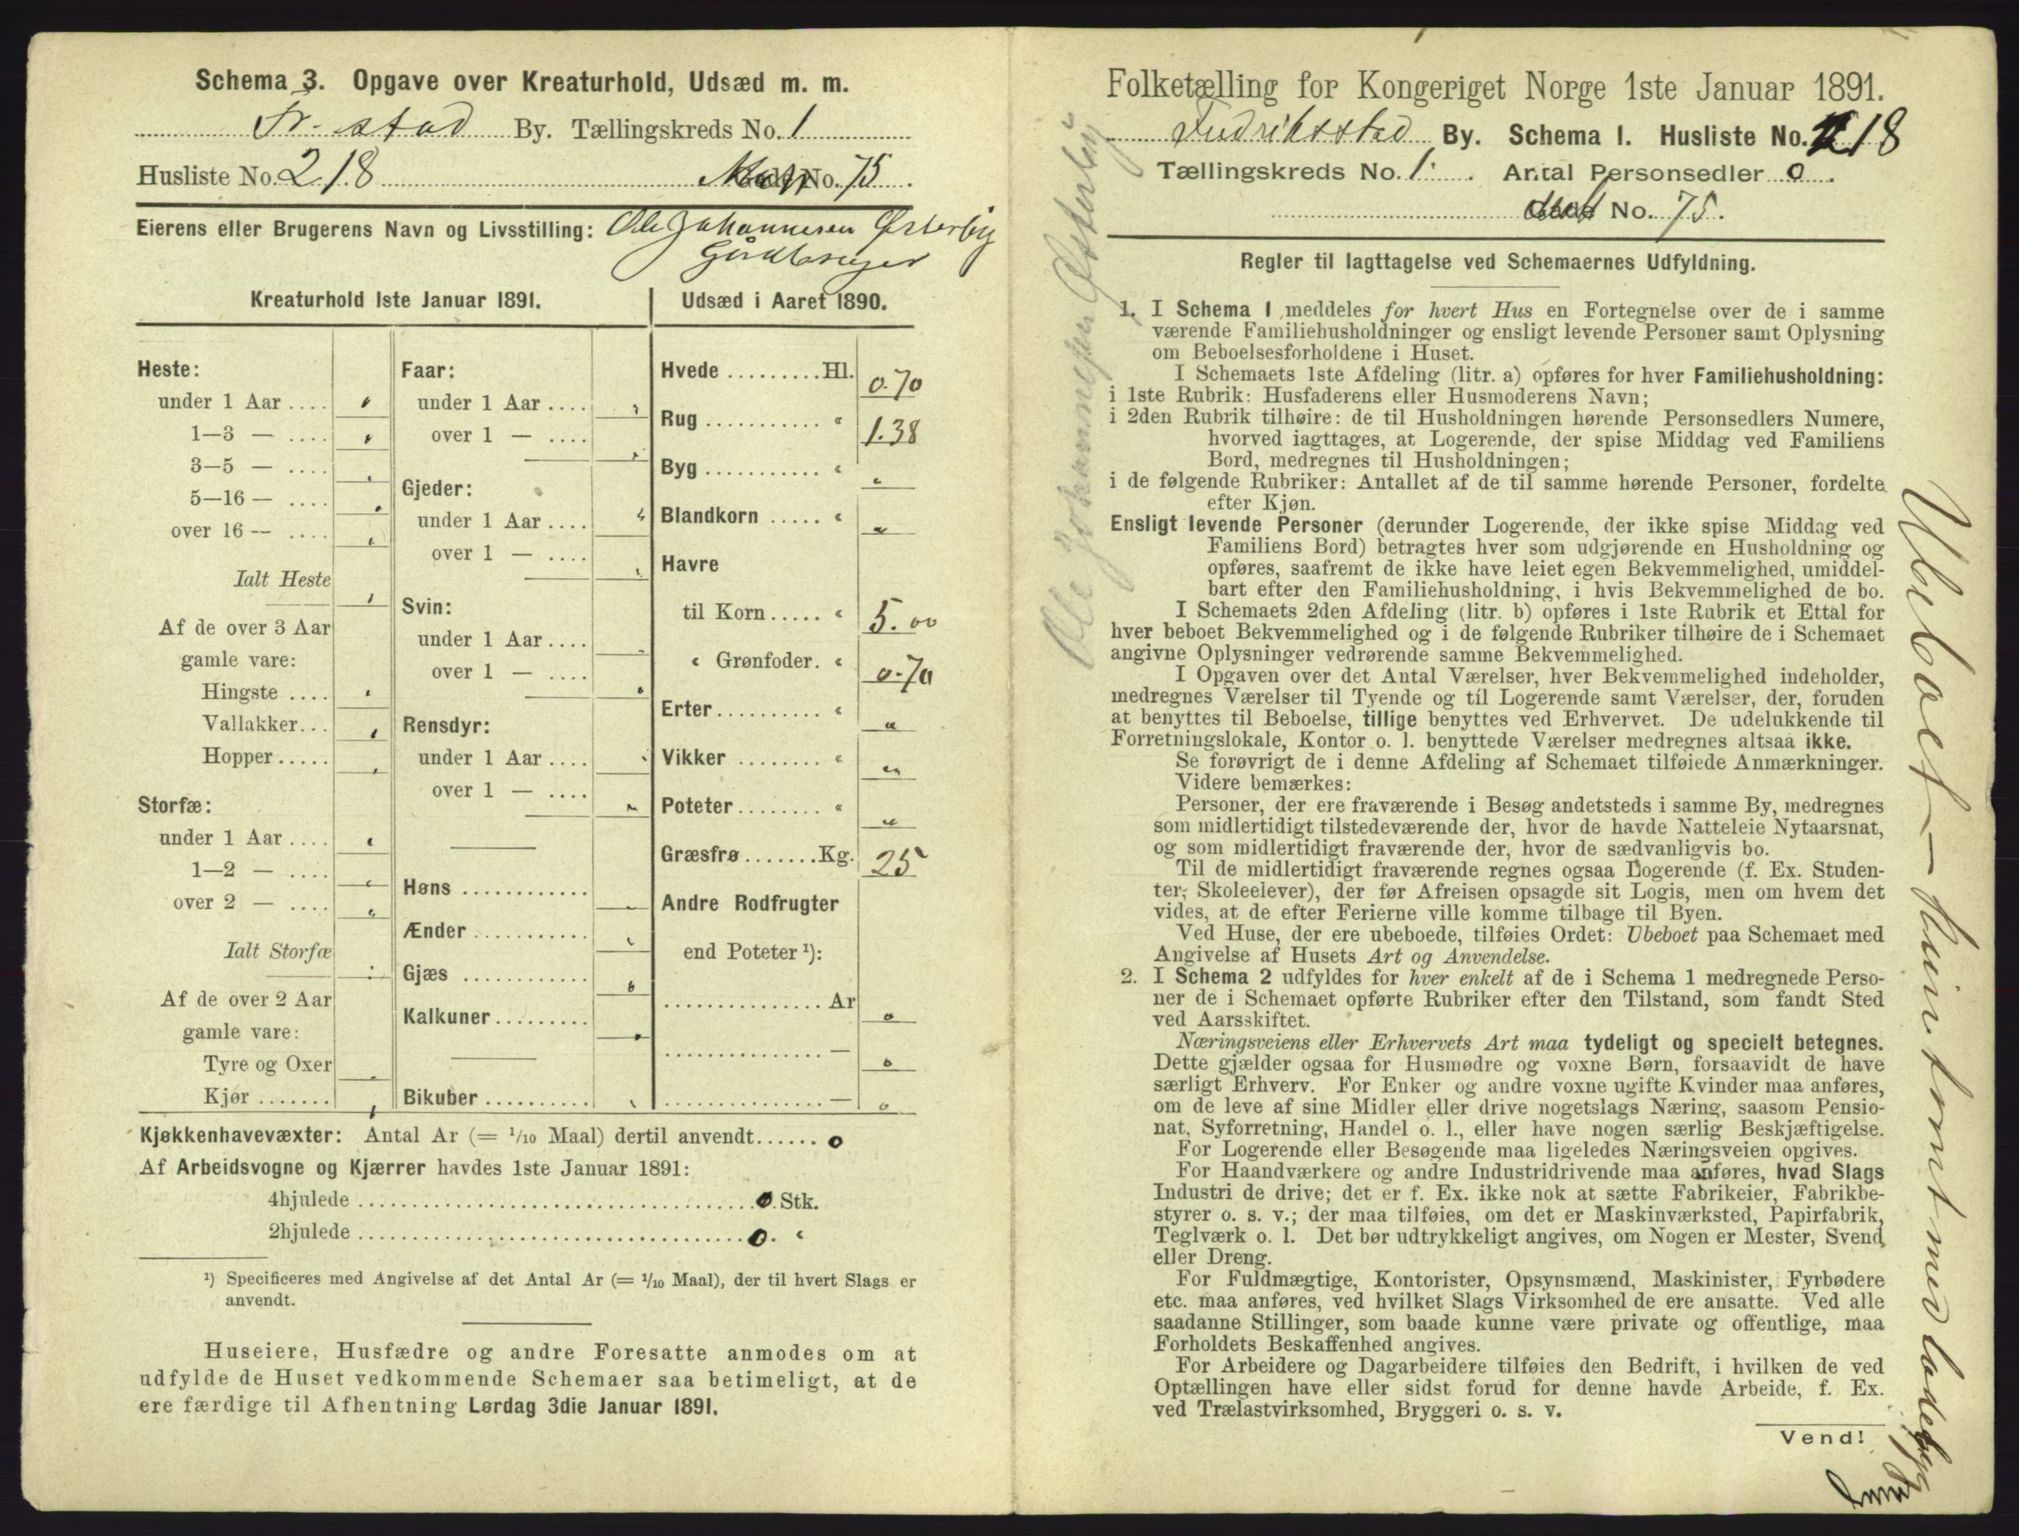 Schema 3. Opgave over Kreaturhold, Udsæd m. m.
Fr.stad By. Tællingskreds No. 1
Husliste No. 218 No. 75.
Eierens eller Brugerens Navn og Livsstilling: Ole Johannesen Østerby
Gårdbruger
Kreaturhold 1ste Januar 1891.
Heste:
under 1 Aar ....
1—3 — ....
3—5 — ....
5—16 — ....
over 16 — ....
Ialt Heste
Af de over 3 Aar
gamle vare:
Hingste ....
Vallakker...
Hopper.....
Storfæ:
under 1 Aar ...
1—2 — ....
over 2 — ....
Ialt Storfæ
Af de over 2 Aar
gamle vare:
Tyre og Oxer
Kjør .......
Faar:
under 1 Aar ....
over 1 — ....
Gjeder:
under 1 Aar ....
over 1 — ....
Svin:
under 1 Aar ....
over 1 — ....
Rensdyr:
under 1 Aar ....
over 1 — ....
Høns ............
Ænder ...........
Gjæs ............
Kalkuner.........
Bikuber ..........
Udsæd i Aaret 1890.
Hvede .........Hl. 0.70
Rug ........... " 1.38
Byg ........... " "
Blandkorn ..... " "
Havre
til Korn..... " 5.00
" Grønfoder. " 0.70
Erter.......... " "
Vikker ........ " "
Poteter ....... " "
Græsfrø.......Kg. 25
Andre Rodfrugter
end Poteter ¹):
................ Ar 0
................ — 0
................ — 0
Kjøkkenhavevæxter: Antal Ar (= 1/10 Maal) dertil anvendt...... 0
Af Arbeidsvogne og Kjærrer havdes 1ste Januar 1891:
4hjulede ........................ 0 Stk.
2hjulede ........................ 0. "
¹) Specificeres med Angivelse af det Antal Ar (= 1/10 Maal), der til hvert Slags er
anvendt.
Huseiere, Husfædre og andre Foresatte anmodes om at
udfylde de Huset vedkommende Schemaer saa betimeligt, at de
ere færdige til Afhentning Lørdag 3die Januar 1891.
Ole Johannesen Østerby
Folketælling for Kongeriget Norge 1ste Januar 1891.
Fredriksstad By. Schema 1. Husliste No. 218
Tællingskreds No. 1. Antal Personsedler 0.
No. 75.
Regler til Iagttagelse ved Schemaernes Udfyldning.
1. I Schema 1 meddeles for hvert Hus en Fortegnelse over de i samme
værende Familiehusholdninger og ensligt levende Personer samt Oplysning
om Beboelsesforholdene i Huset.
I Schemaets 1ste Afdeling (litr. a) opføres for hver Familiehusholdning:
i 1ste Rubrik: Husfaderens eller Husmoderens Navn;
i 2den Rubrik tilhøire: de til Husholdningen hørende Personsedlers Numere,
hvorved iagttages, at Logerende, der spise Middag ved Familiens
Bord, medregnes til Husholdningen;
i de følgende Rubriker: Antallet af de til samme hørende Personer, fordelte
efter Kjøn.
Ensligt levende Personer (derunder Logerende, der ikke spise Middag ved
Familiens Bord) betragtes hver som udgjørende en Husholdning og
opføres, saafremt de ikke have leiet egen Bekvemmelighed, umiddel-
bart efter den Familiehusholdning, i hvis Bekvemmelighed de bo.
I Schemaets 2den Afdeling (litr. b) opføres i 1ste Rubrik et Ettal for
hver beboet Bekvemmelighed og i de følgende Rubriker tilhøire de i Schemaet
angivne Oplysninger vedrørende samme Bekvemmelighed.
I Opgaven over det Antal Værelser, hver Bekvemmelighed indeholder,
medregnes Værelser til Tyende og til Logerende samt Værelser, der, foruden
at benyttes til Beboelse, tillige benyttes ved Erhvervet. De udelukkende til
Forretningslokale, Kontor o. l. benyttede Værelser medregnes altsaa ikke.
Se forøvrigt de i denne Afdeling af Schemaet tilføiede Anmærkninger.
Videre bemærkes:
Personer, der ere fraværende i Besøg andetsteds i samme By, medregnes
som midlertidigt tilstedeværende der, hvor de havde Natteleie Nytaarsnat,
og som midlertidigt fraværende der, hvor de sædvanligvis bo.
Til de midlertidigt fraværende regnes ogsaa Logerende (f. Ex. Studen-
ter, Skoleelever), der før Afreisen opsagde sit Logis, men om hvem det
vides, at de efter Ferierne ville komme tilbage til Byen.
Ved Huse, der ere ubeboede, tilføies Ordet: Ubeboet paa Schemaet med
Angivelse af Husets Art og Anvendelse.
2. I Schema 2 udfyldes for hver enkelt af de i Schema 1 medregnede Perso-
ner de i Schemaet opførte Rubriker efter den Tilstand, som fandt Sted
ved Aarsskiftet.
Næringsveiens eller Erhvervets Art maa tydeligt og specielt betegnes.
Dette gjælder ogsaa for Husmødre og voxne Børn, forsaavidt de have
særligt Erhverv. For Enker og andre voxne ugifte Kvinder maa anføres,
om de leve af sine Midler eller drive nogetslags Næring, saasom Pensio-
nat, Syforretning, Handel o. l., eller have nogen særlig Beskjæftigelse.
For Logerende eller Besøgende maa ligeledes Næringsveien opgives.
For Haandværkere og andre Industridrivende maa anføres, hvad Slags
Industri de drive; det er f. Ex. ikke nok at sætte Fabrikeier, Fabrikbe-
styrer o. s. v.; der maa tilføies, om det er Maskinværksted, Papirfabrik,
Teglværk o. l. Det bør udtrykkeligt angives, om Nogen er Mester, Svend
eller Dreng.
For Fuldmægtige, Kontorister, Opsynsmænd, Maskinister, Fyrbødere
etc. maa anføres, ved hvilket Slags Virksomhed de ere ansatte. Ved alle
saadanne Stillinger, som baade kunne være private og offentlige, maa
Forholdets Beskaffenhed angives.
For Arbeidere og Dagarbeidere tilføies den Bedrift, i hvilken de ved
Optællingen have eller sidst forud for denne havde Arbeide, f. Ex.
ved Trælastvirksomhed, Bryggeri o. s. v.
Vend!
Ubeboet — kun tomt med ladebyg